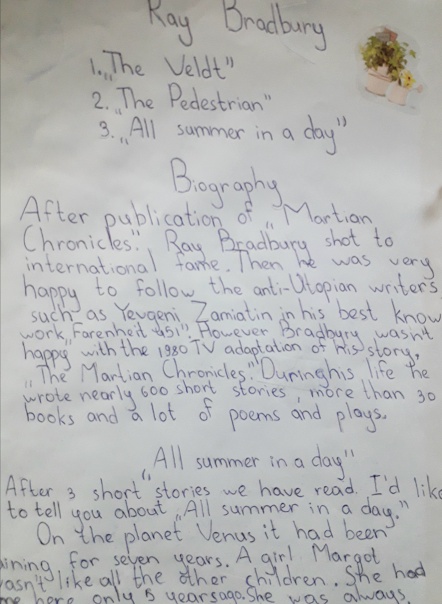 Ray Bradbury
1. „The Veldt"
2. „The Pedestrian"
3. „All summer in a day"
Biography
After publication of „Martian
Chronicles". Ray Bradbury shot to
international fame. Then he was very
happy to follow the anti-Utopian writers
such as Yevgeni Zamiatin in his best know
work „Farenheit 451". However Bradbury wasn't
happy with the 1980 TV adaptation of his story,
„The Martian Chronicles." During his life he
wrote nearly 600 short stories, more than 30
books and a lot of poems and plays.
"All summer in a day"
After 3 short stories we have read. I'd like
to tell you about „All summer in a day."
On the planet Venus it had been
aining for seven years. A girl Margot
asn't like all the other children. She had
me here only 5 years ago. She was always